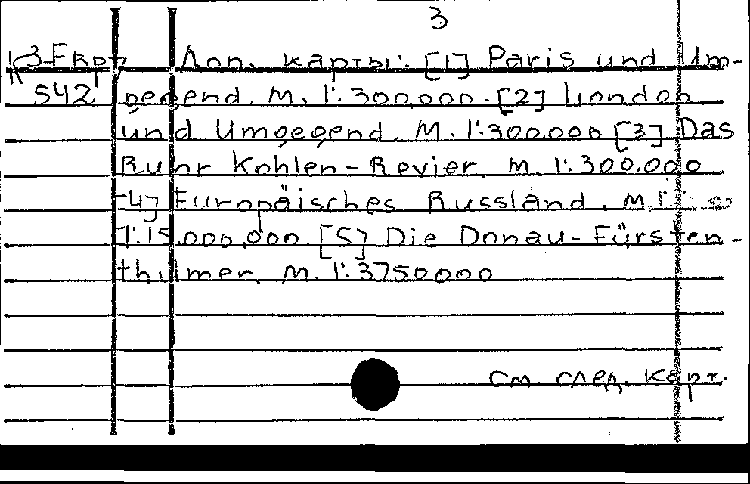 3
К3-Евр Доп. карты: [1] Paris und Um-
542 gegend. M. 1:300.000. [2] London
und Umgegend. M. 1:300.000 [3] Das
Ruhr Kohlen-Revier. M. 1:300.000
[4] Europäisches Russland. M.
1:15.000.000. [5] Die Donau-Fürsten-
thümer. M. 1:3750000
см. след. карт.